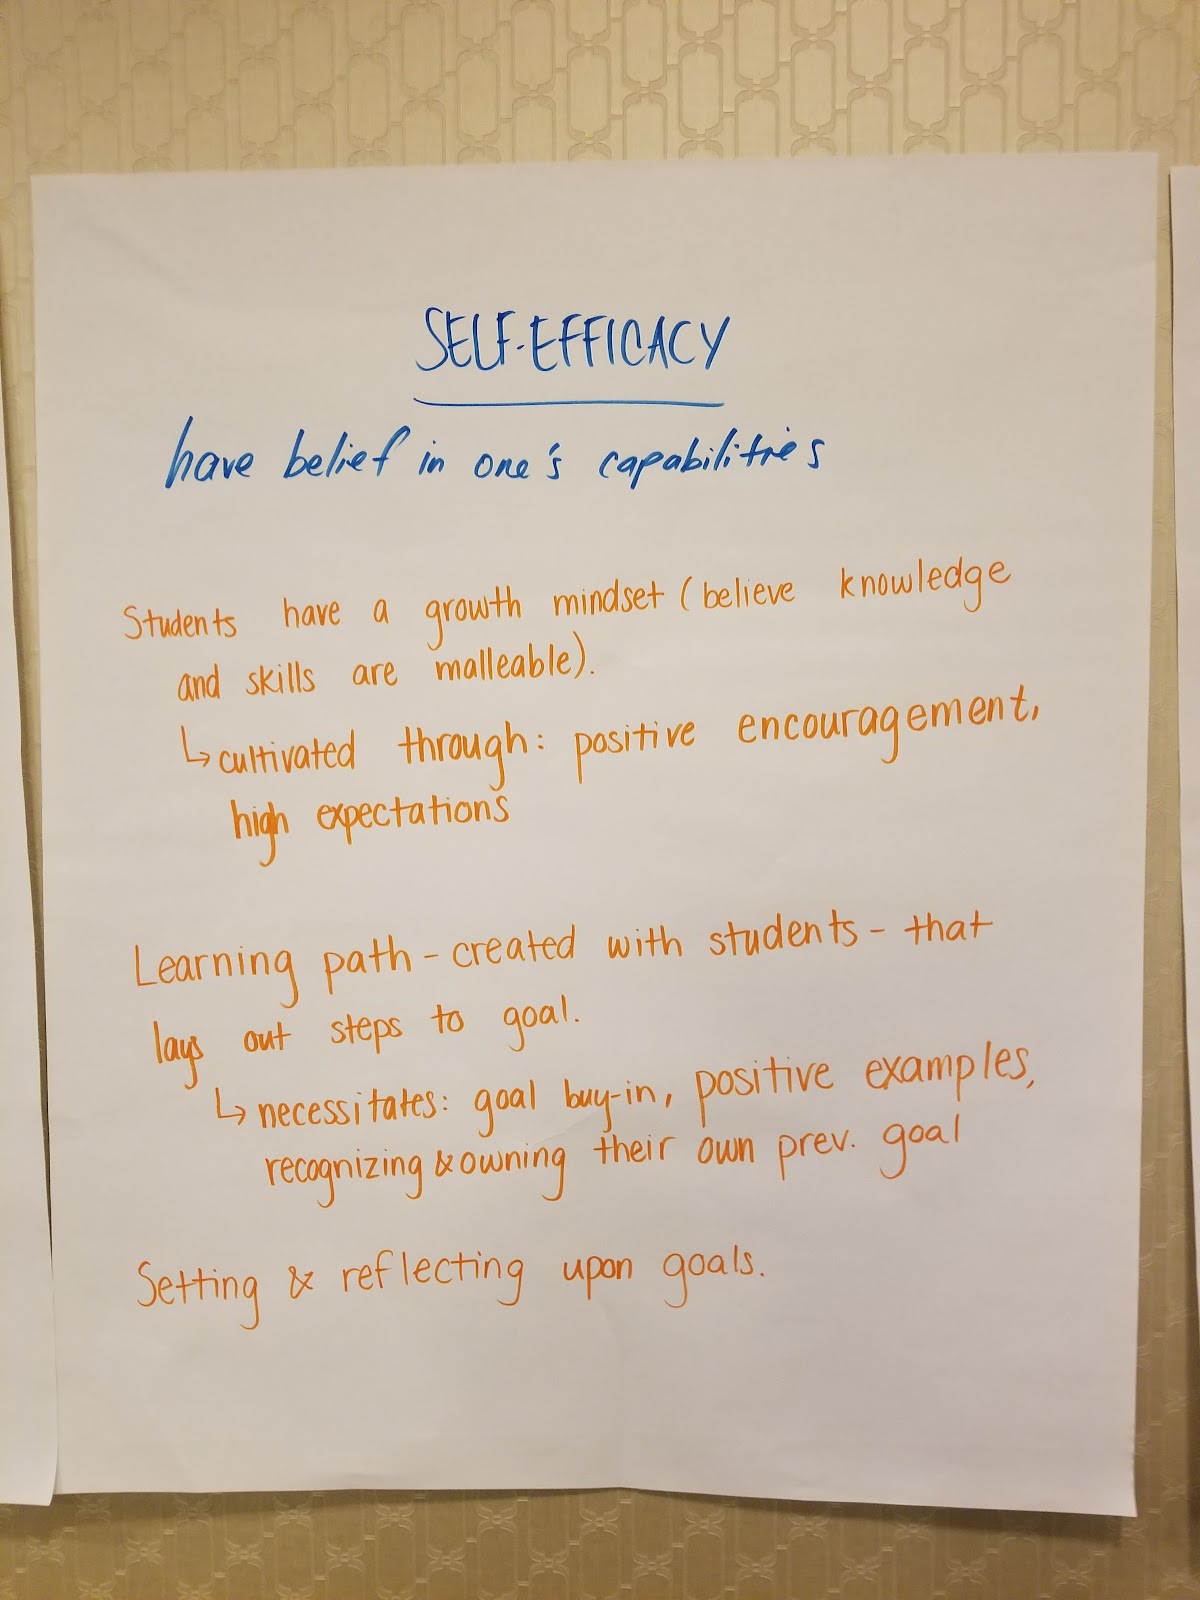 SELF-EFFICACY
have belief in one's capabilities
Students have a growth mindset (believe knowledge
and skills are malleable).
↳ cultivated through: positive encouragement,
high expectations
Learning path - created with students - that
lays out steps to goal.
↳ necessitates: goal buy-in, positive examples,
recognizing & owning their own prev. goal
Setting & reflecting upon goals.